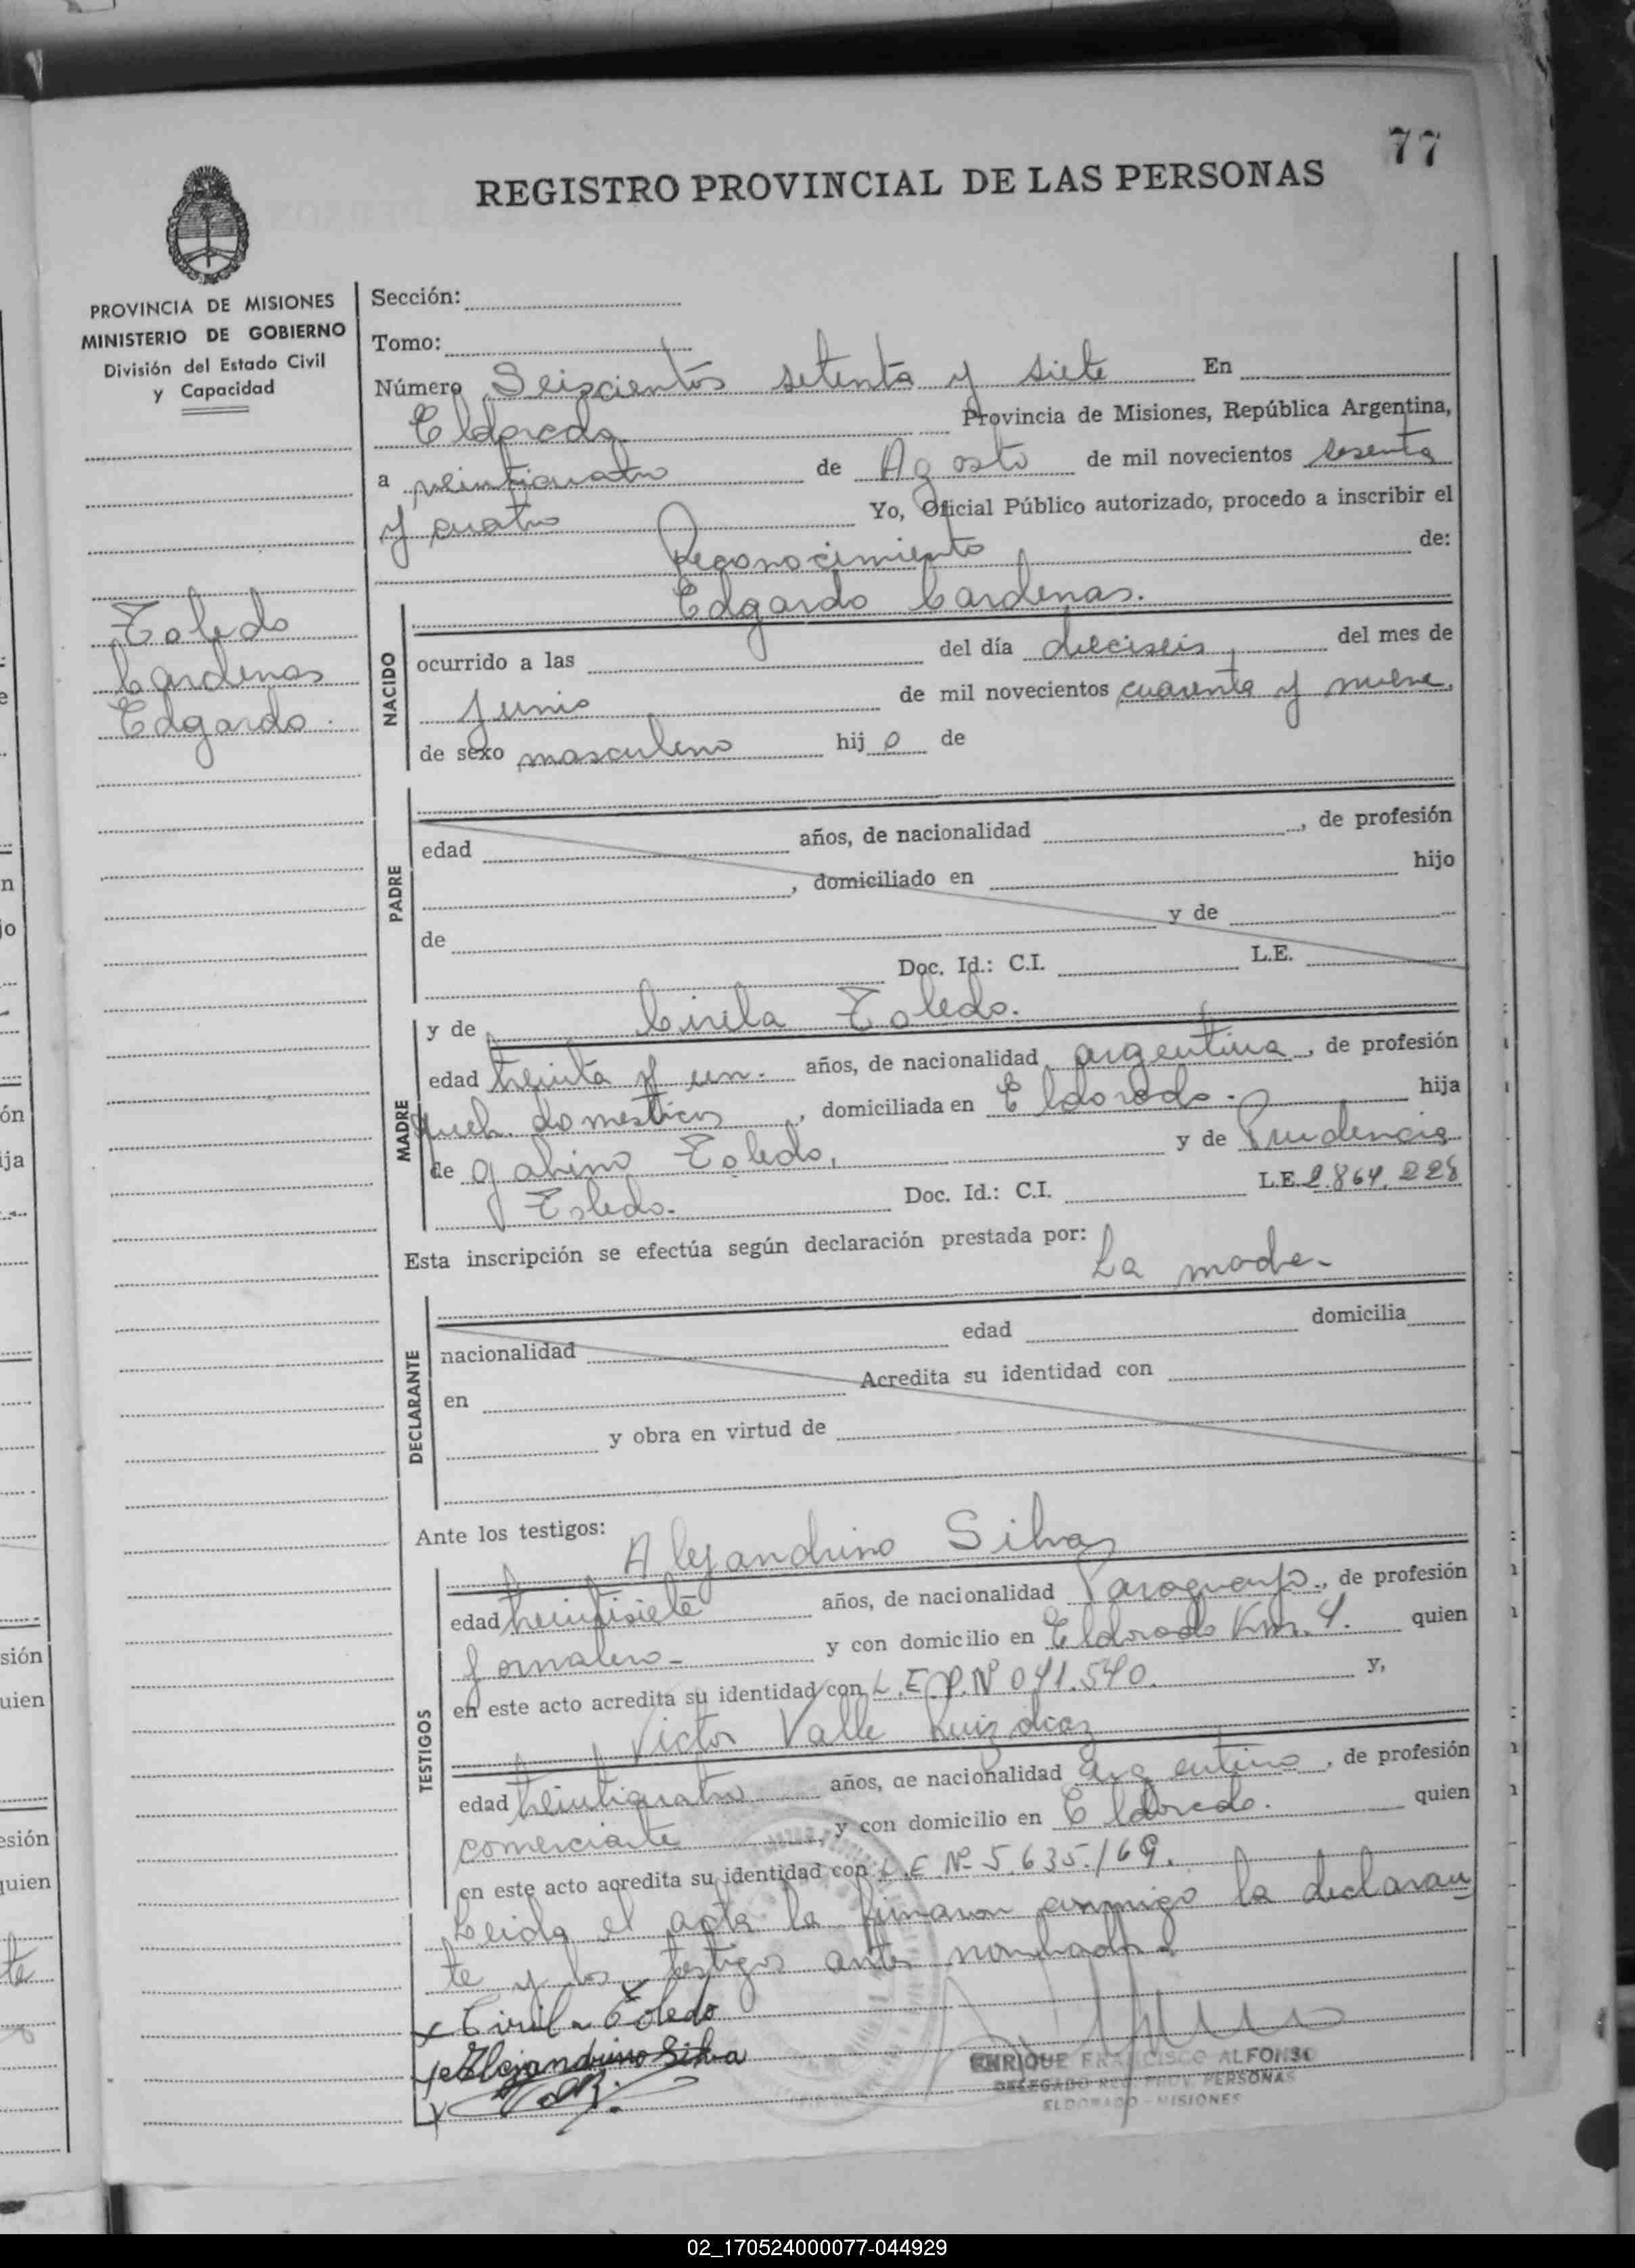 77
REGISTRO PROVINCIAL DE LAS PERSONAS
PROVINCIA DE MISIONES
MINISTERIO DE GOBIERNO
División del Estado Civil
y Capacidad
Toledo
Cardenas
Edgardo.
Sección:
Tomo:
Número Seiscientos setenta y siete En
Eldorado Provincia de Misiones, República Argentina,
a veinticuatro de Agosto de mil novecientos sesenta
y cuatro Yo, Oficial Público autorizado, procedo a inscribir el
Reconocimiento de:
Edgardo Cardenas.
NACIDO
ocurrido a las del día dieciseis del mes de
Junio de mil novecientos cuarenta y nueve,
de sexo masculino hij o de
PADRE
edad años, de nacionalidad , de profesión
, domiciliado en hijo
de y de
Doc. Id.: C.I. L.E.
MADRE
y de Cirila Toledo.
edad treinta y un. años, de nacionalidad argentina, de profesión
queh. domesticos, domiciliada en Eldorado. hija
de Gabino Toledo, y de Prudencia
Toledo. Doc. Id.: C.I. L.E. 2.864.228
Esta inscripción se efectúa según declaración prestada por:
La madre.
DECLARANTE
nacionalidad edad domicilia
en Acredita su identidad con
y obra en virtud de
Ante los testigos:
Alejandrino Silva
TESTIGOS
edad treintisiete años, de nacionalidad Paraguayo., de profesión
jornalero- y con domicilio en Eldorado Km. 4. quien
en este acto acredita su identidad con L.E.P.Nº 041.540. y,
Victor Valle Ruizdiaz
edad treinticuatro años, de nacionalidad Argentino, de profesión
comerciante, y con domicilio en Eldorado. quien
en este acto acredita su identidad con L.E Nº 5.635.169.
Leida el acta la firmaron conmigo la declaran
te y los testigos antes nombrados.
x Cirila Toledo
x Alejandrino Silva
x
ENRIQUE FRANCISCO ALFONSO
DELEGADO REG. PROV. PERSONAS
ELDORADO - MISIONES
02_170524000077-044929